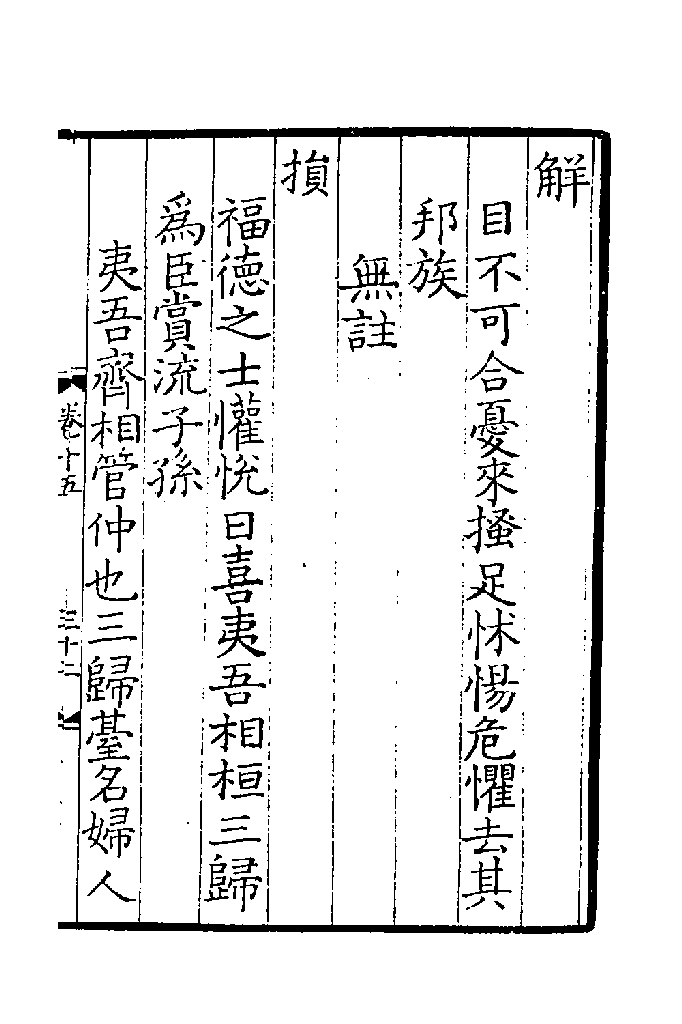 解
目不可合憂來搔足怵惕危懼去其
邦族
無註
損
福德之士懽悅日喜夷吾相桓三歸
為臣賞流子孫
夷吾齊相管仲也三歸臺名婦人
卷十五
三十二